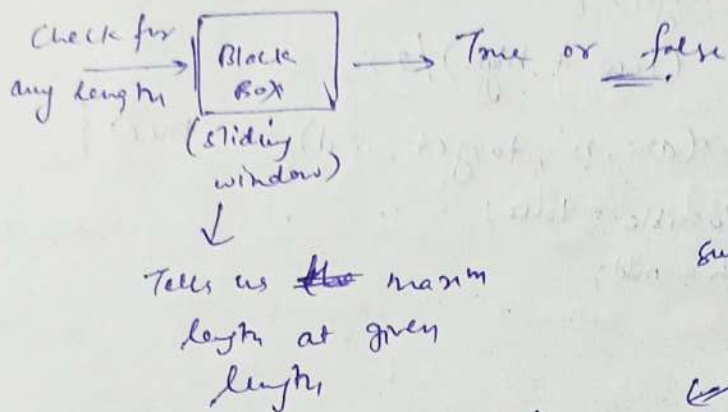 Check for
any length
Black
Box
True or false
(sliding
window)
Tells us maxm
length at given
length